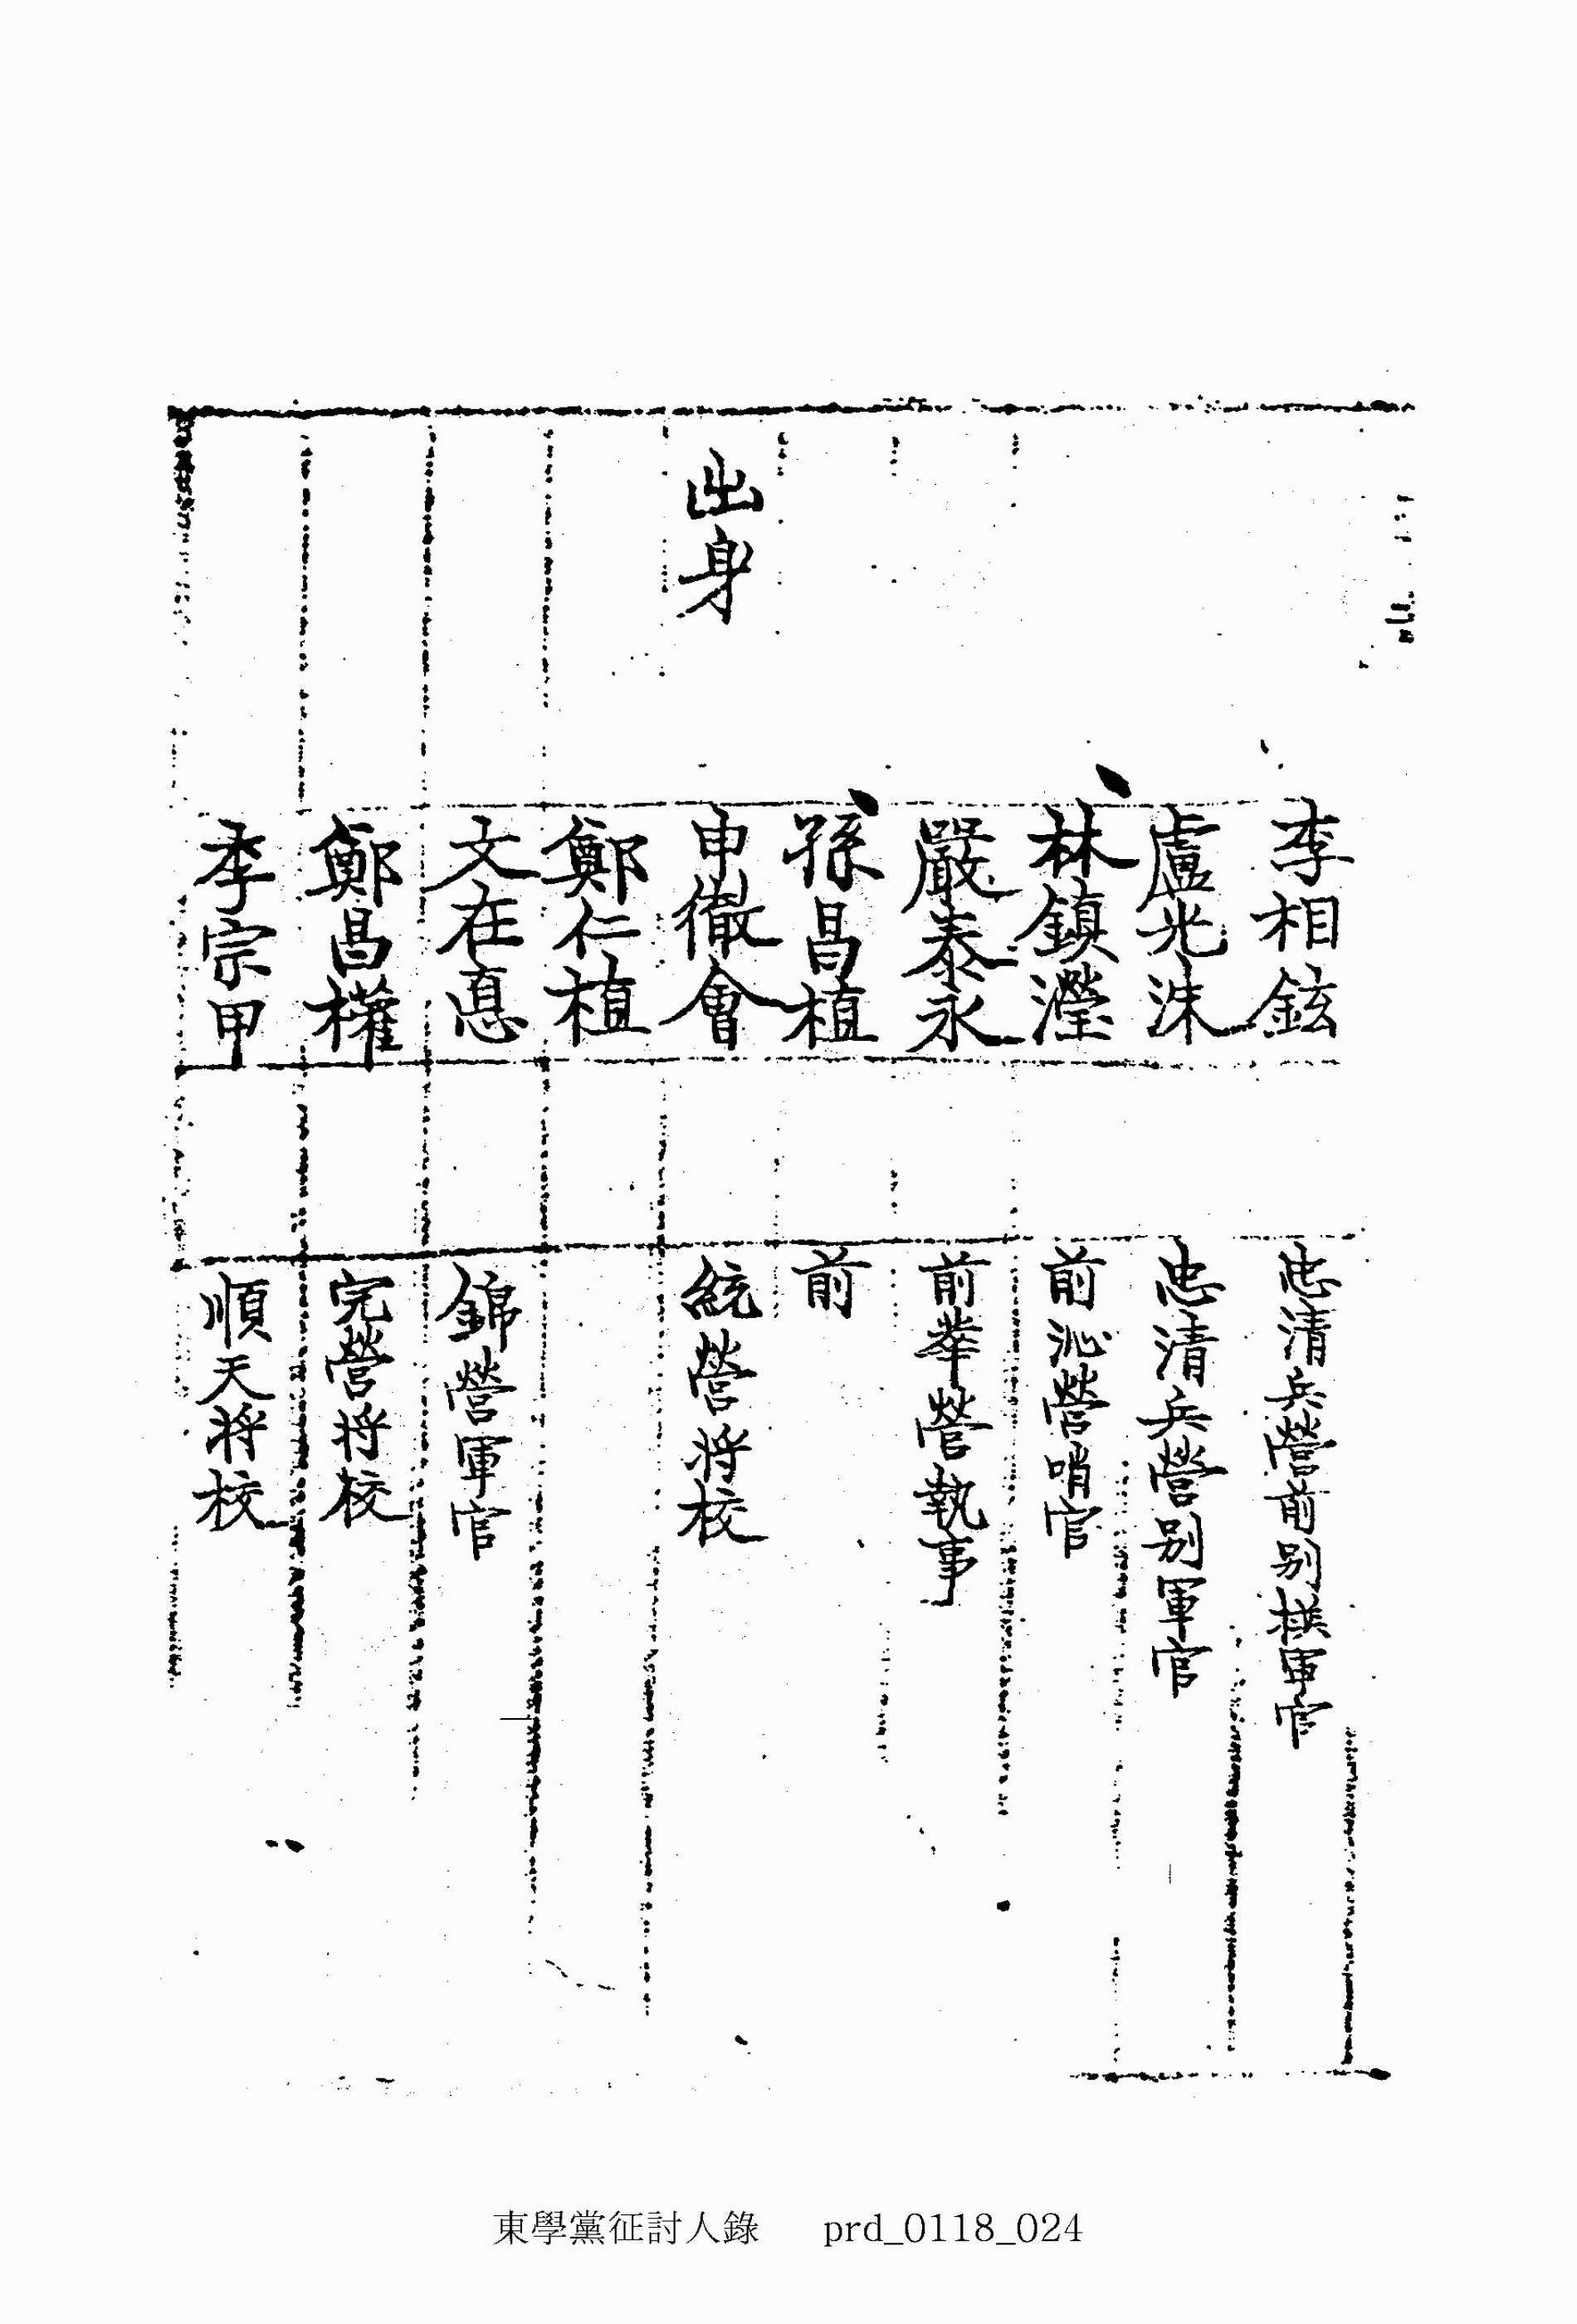 李相鉉 忠清兵營前別撰軍官
盧光洙 忠清兵營別軍官
林鎮瀅 前沁營哨官
嚴泰永 前華營執事
孫昌植 前
出身 申徹會 統營将校
鄭仁植
文在悳 錦營軍官
鄭昌權 完營将校
李宗甲 順天将校
東學黨征討人錄 prd_0118_024